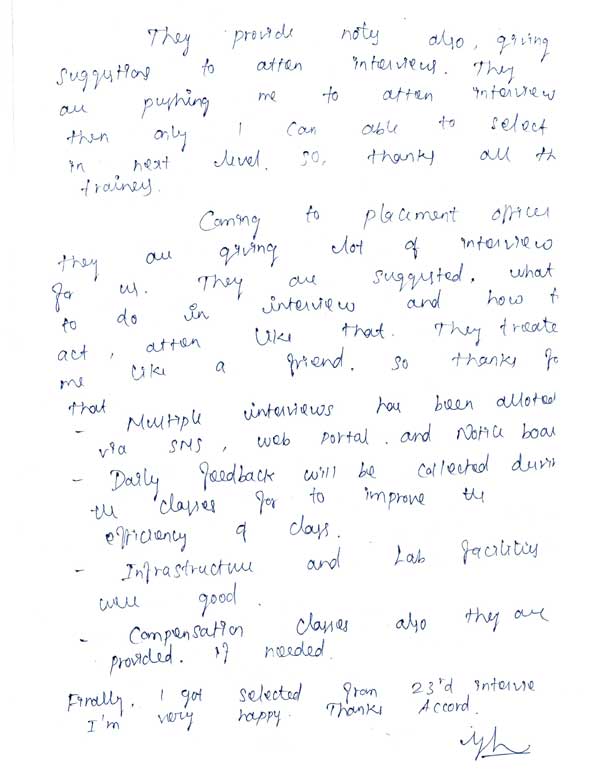 They provide notes also, giving
suggestions to atten interviews. They
are pushing me to atten interview
then only I can able to select
in next level. So, thanks all th
trainers.
Coming to placement officer
they are giving lot of interview
for us. They are suggested, what
to do in interview and how t
act, atten like that. They treate
me like a friend. So thanks fo
that
- Multiple interviews has been alloted
via SMS, web portal. and Notice boar
- Daily feedback will be collected durin
the classes for to improve the
efficiency of class.
- Infrastructure and Lab facilities
were good.
- Compensation classes also they are
provided. if needed.
Finally. I got selected from 23rd intervie
I'm very happy. Thanks Accord.